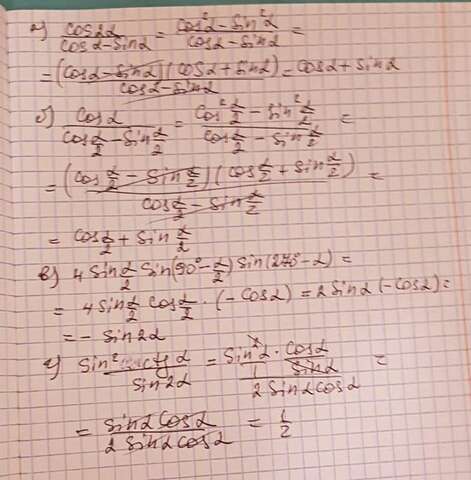 а) cos2α / (cosα - sinα) = (cos²α - sin²α) / (cosα - sinα) =
= (cosα - sinα)(cosα + sinα) / (cosα - sinα) = cosα + sinα
б) cosα / (cos α/2 - sin α/2) = (cos² α/2 - sin² α/2) / (cos α/2 - sin α/2) =
= (cos α/2 - sin α/2)(cos α/2 + sin α/2) / (cos α/2 - sin α/2) =
= cos α/2 + sin α/2
в) 4 sin α/2 sin(90° - α/2) sin(270° - α) =
= 4 sin α/2 cos α/2 · (-cosα) = 2 sinα (-cosα) =
= - sin2α
г) sin²α ctgα / sin2α = (sin²α / 1 · cosα / sinα) / (2 sinα cosα) =
= sinα cosα / (2 sinα cosα) = 1/2